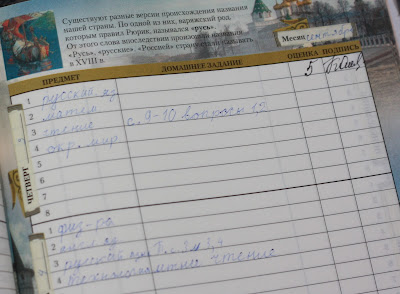 Существуют разные версии происхождения названия
нашей страны. По одной из них, варяжский род,
которым правил Рюрик, назывался «русь».
От этого слова впоследствии произошли названия
«Русь», «русские». «Россией» страну стали называть
в XVIII в.
Месяц сентябрь
ПРЕДМЕТ ДОМАШНЕЕ ЗАДАНИЕ ОЦЕНКА ПОДПИСЬ
1 русский яз 5
2 матем
3 чтение с. 9-10 вопросы 1,2
4 окр. мир
5
6
7
8
ЧЕТВЕРГ
1 физ-ра
2 англ яз
3 русский
4 чтение